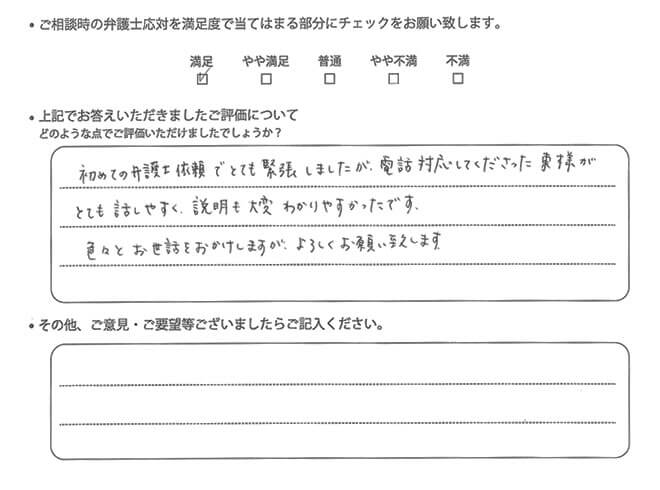 • ご相談時の弁護士応対を満足度で当てはまる部分にチェックをお願い致します。
満足 やや満足 普通 やや不満 不満
• 上記でお答えいただきましたご評価について
どのような点でご評価いただけましたでしょうか？
初めての弁護士依頼でとても緊張しましたが、電話対応してくださった東様が
とても話しやすく、説明も大変わかりやすかったです。
色々とお世話をおかけしますが、よろしくお願い致します
• その他、ご意見・ご要望等ございましたらご記入ください。